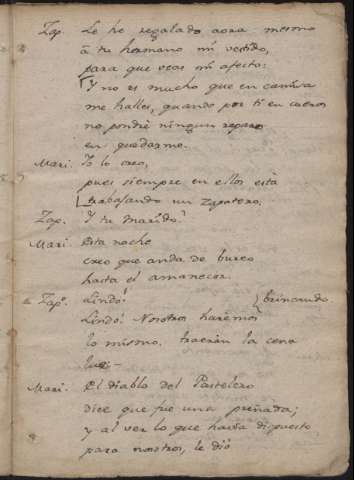 Zap. Le he regalado aora mesmo
a tu hermano mi vestido,
para que veas mi afecto:
Y no es mucho que en camisa
me halles, quando por ti en cueros
no pondré ningun reparo
en quedarme.
Mari. Yo lo creo,
pues siempre en ellos está
trabajando un Zapatero.
Zap. Y tu Marido?
Mari. Esta noche
creo que anda de bureo
hasta el amanecer.
Zapo. Lindo! brincando.
Lindo! Nosotros harémos
lo mismo. traerán la cena
Mari. El diablo del Pastelero
dice que fue una preñada;
y al ver lo que havia dispuesto
para nosotros, le dió